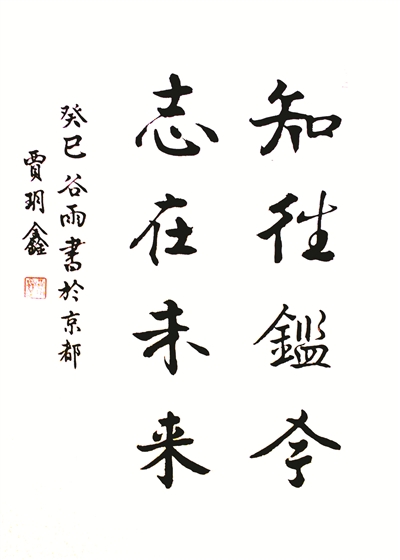 知往鑑今
志在未来
癸巳谷雨書於京都
賈玥鑫